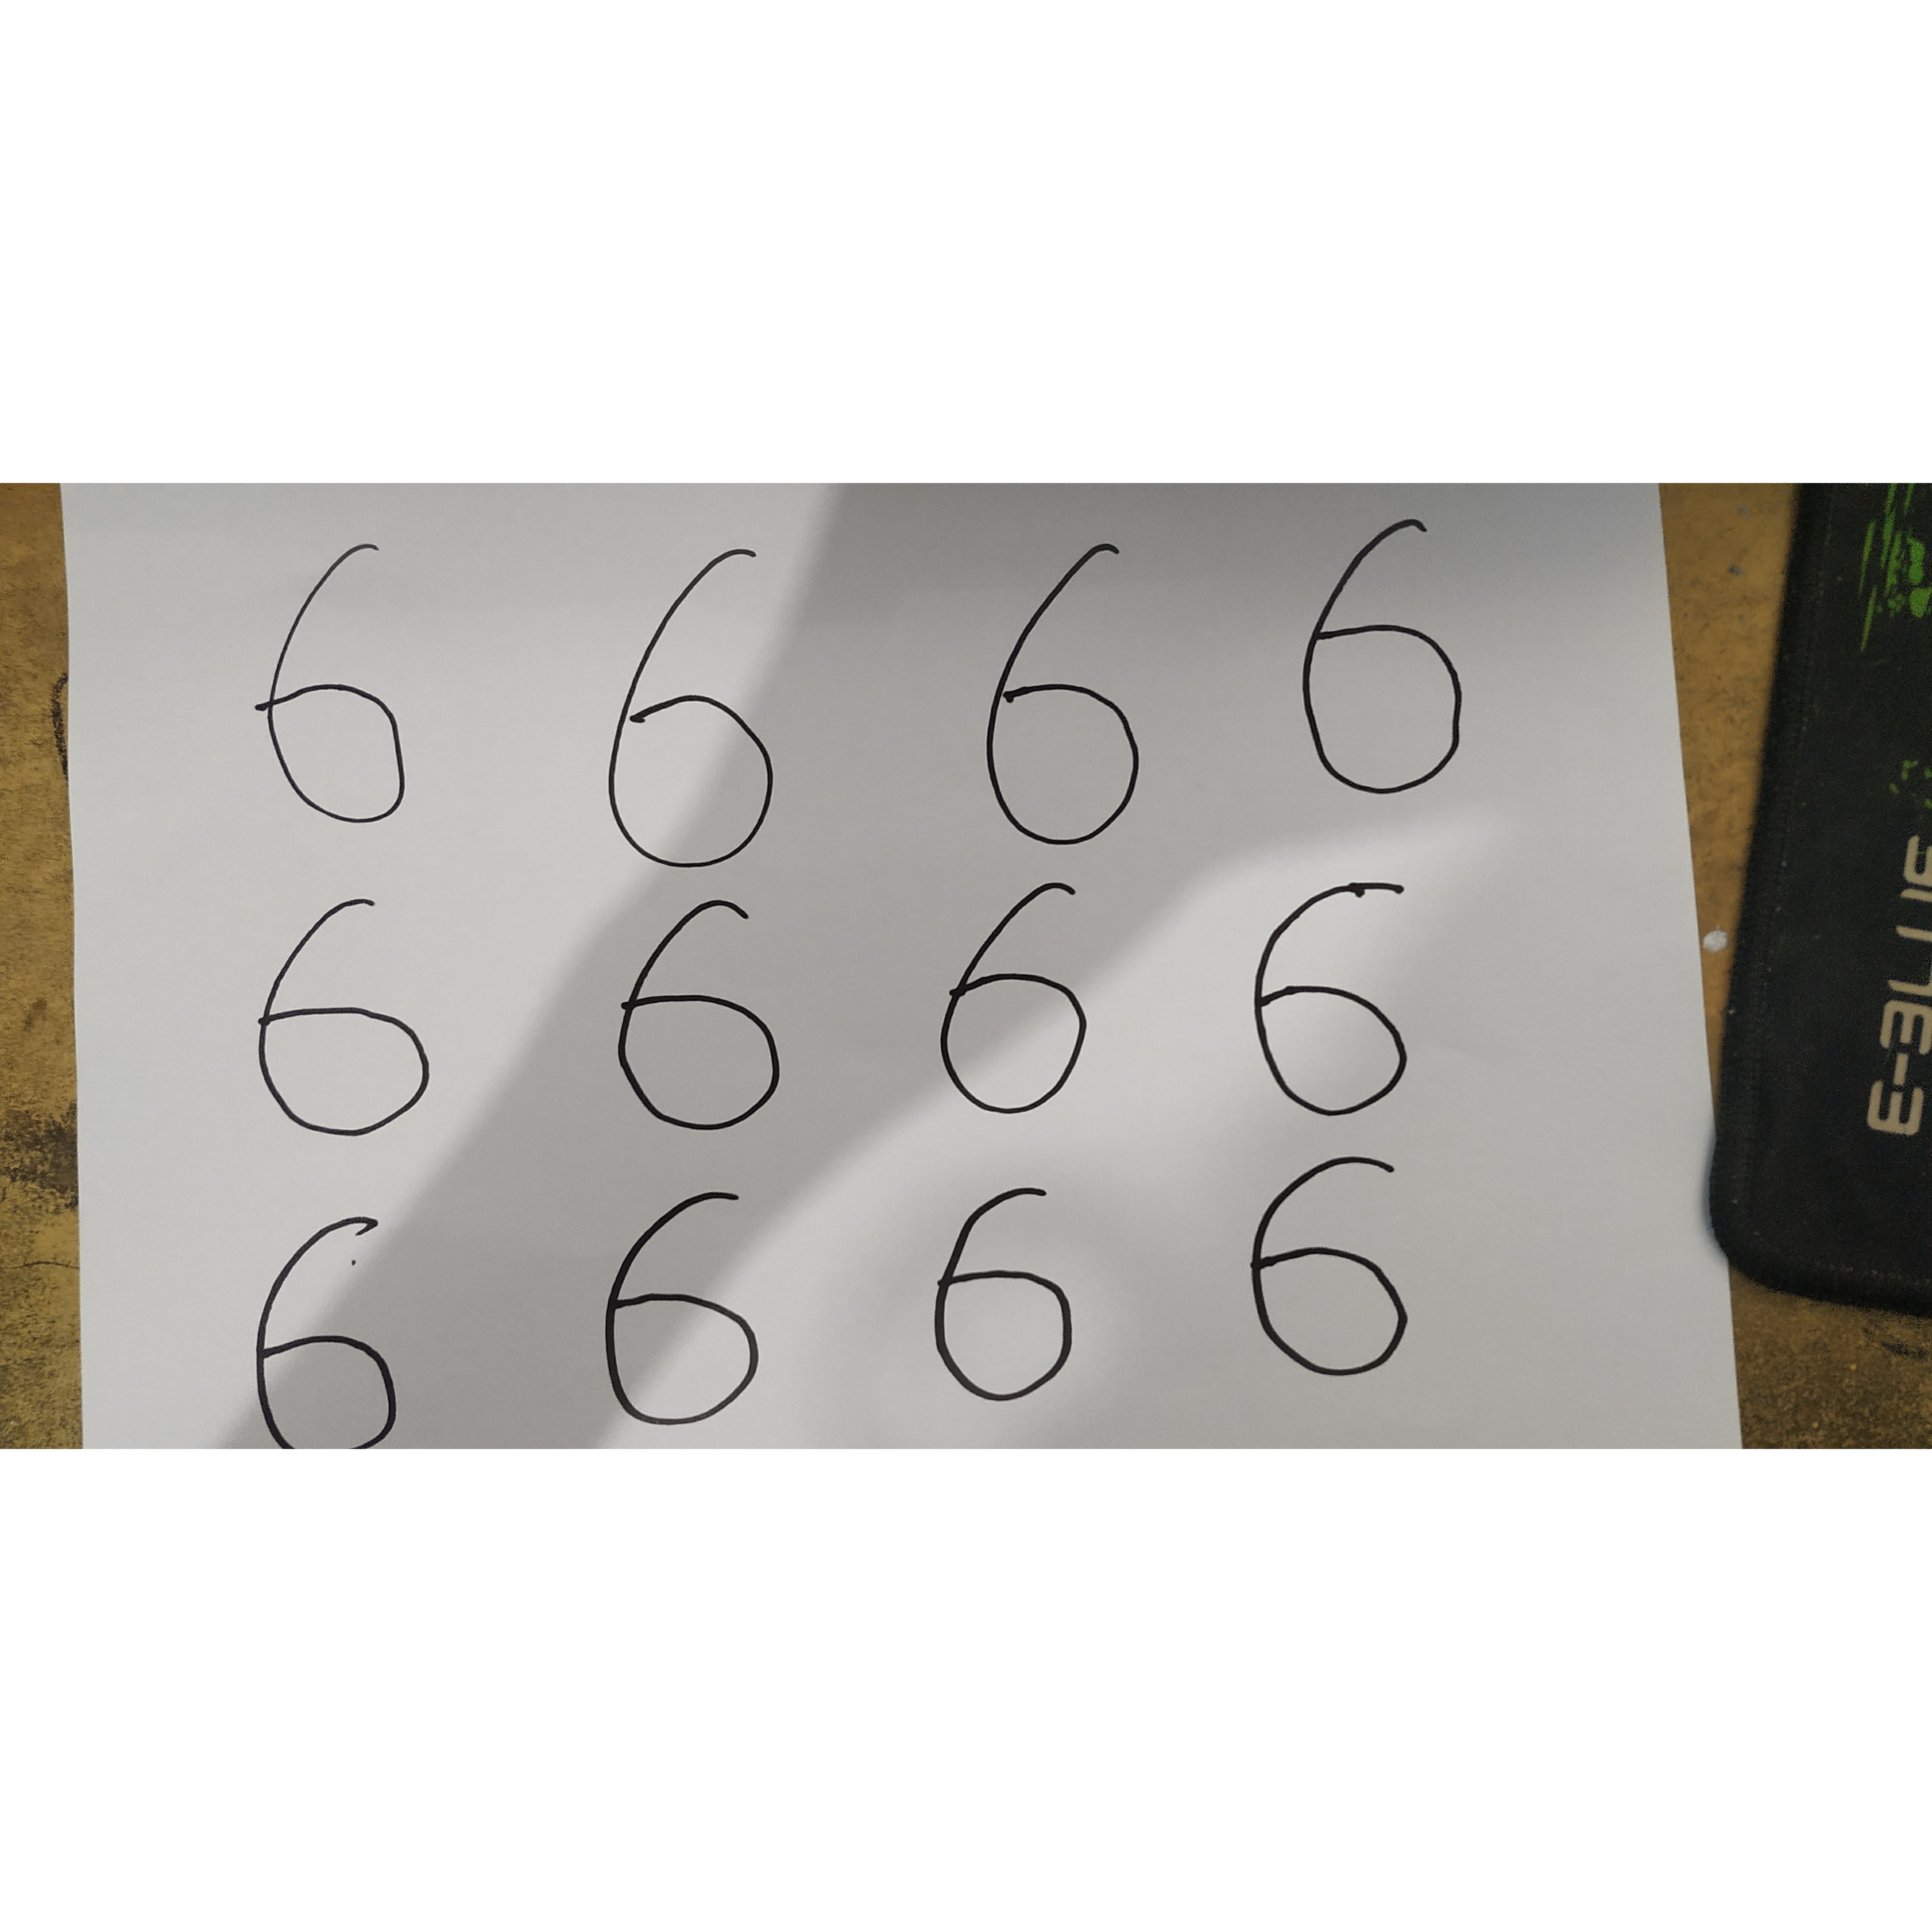 6 6 6 6
6 6 6 6
6 6 6 6
E-BLUE